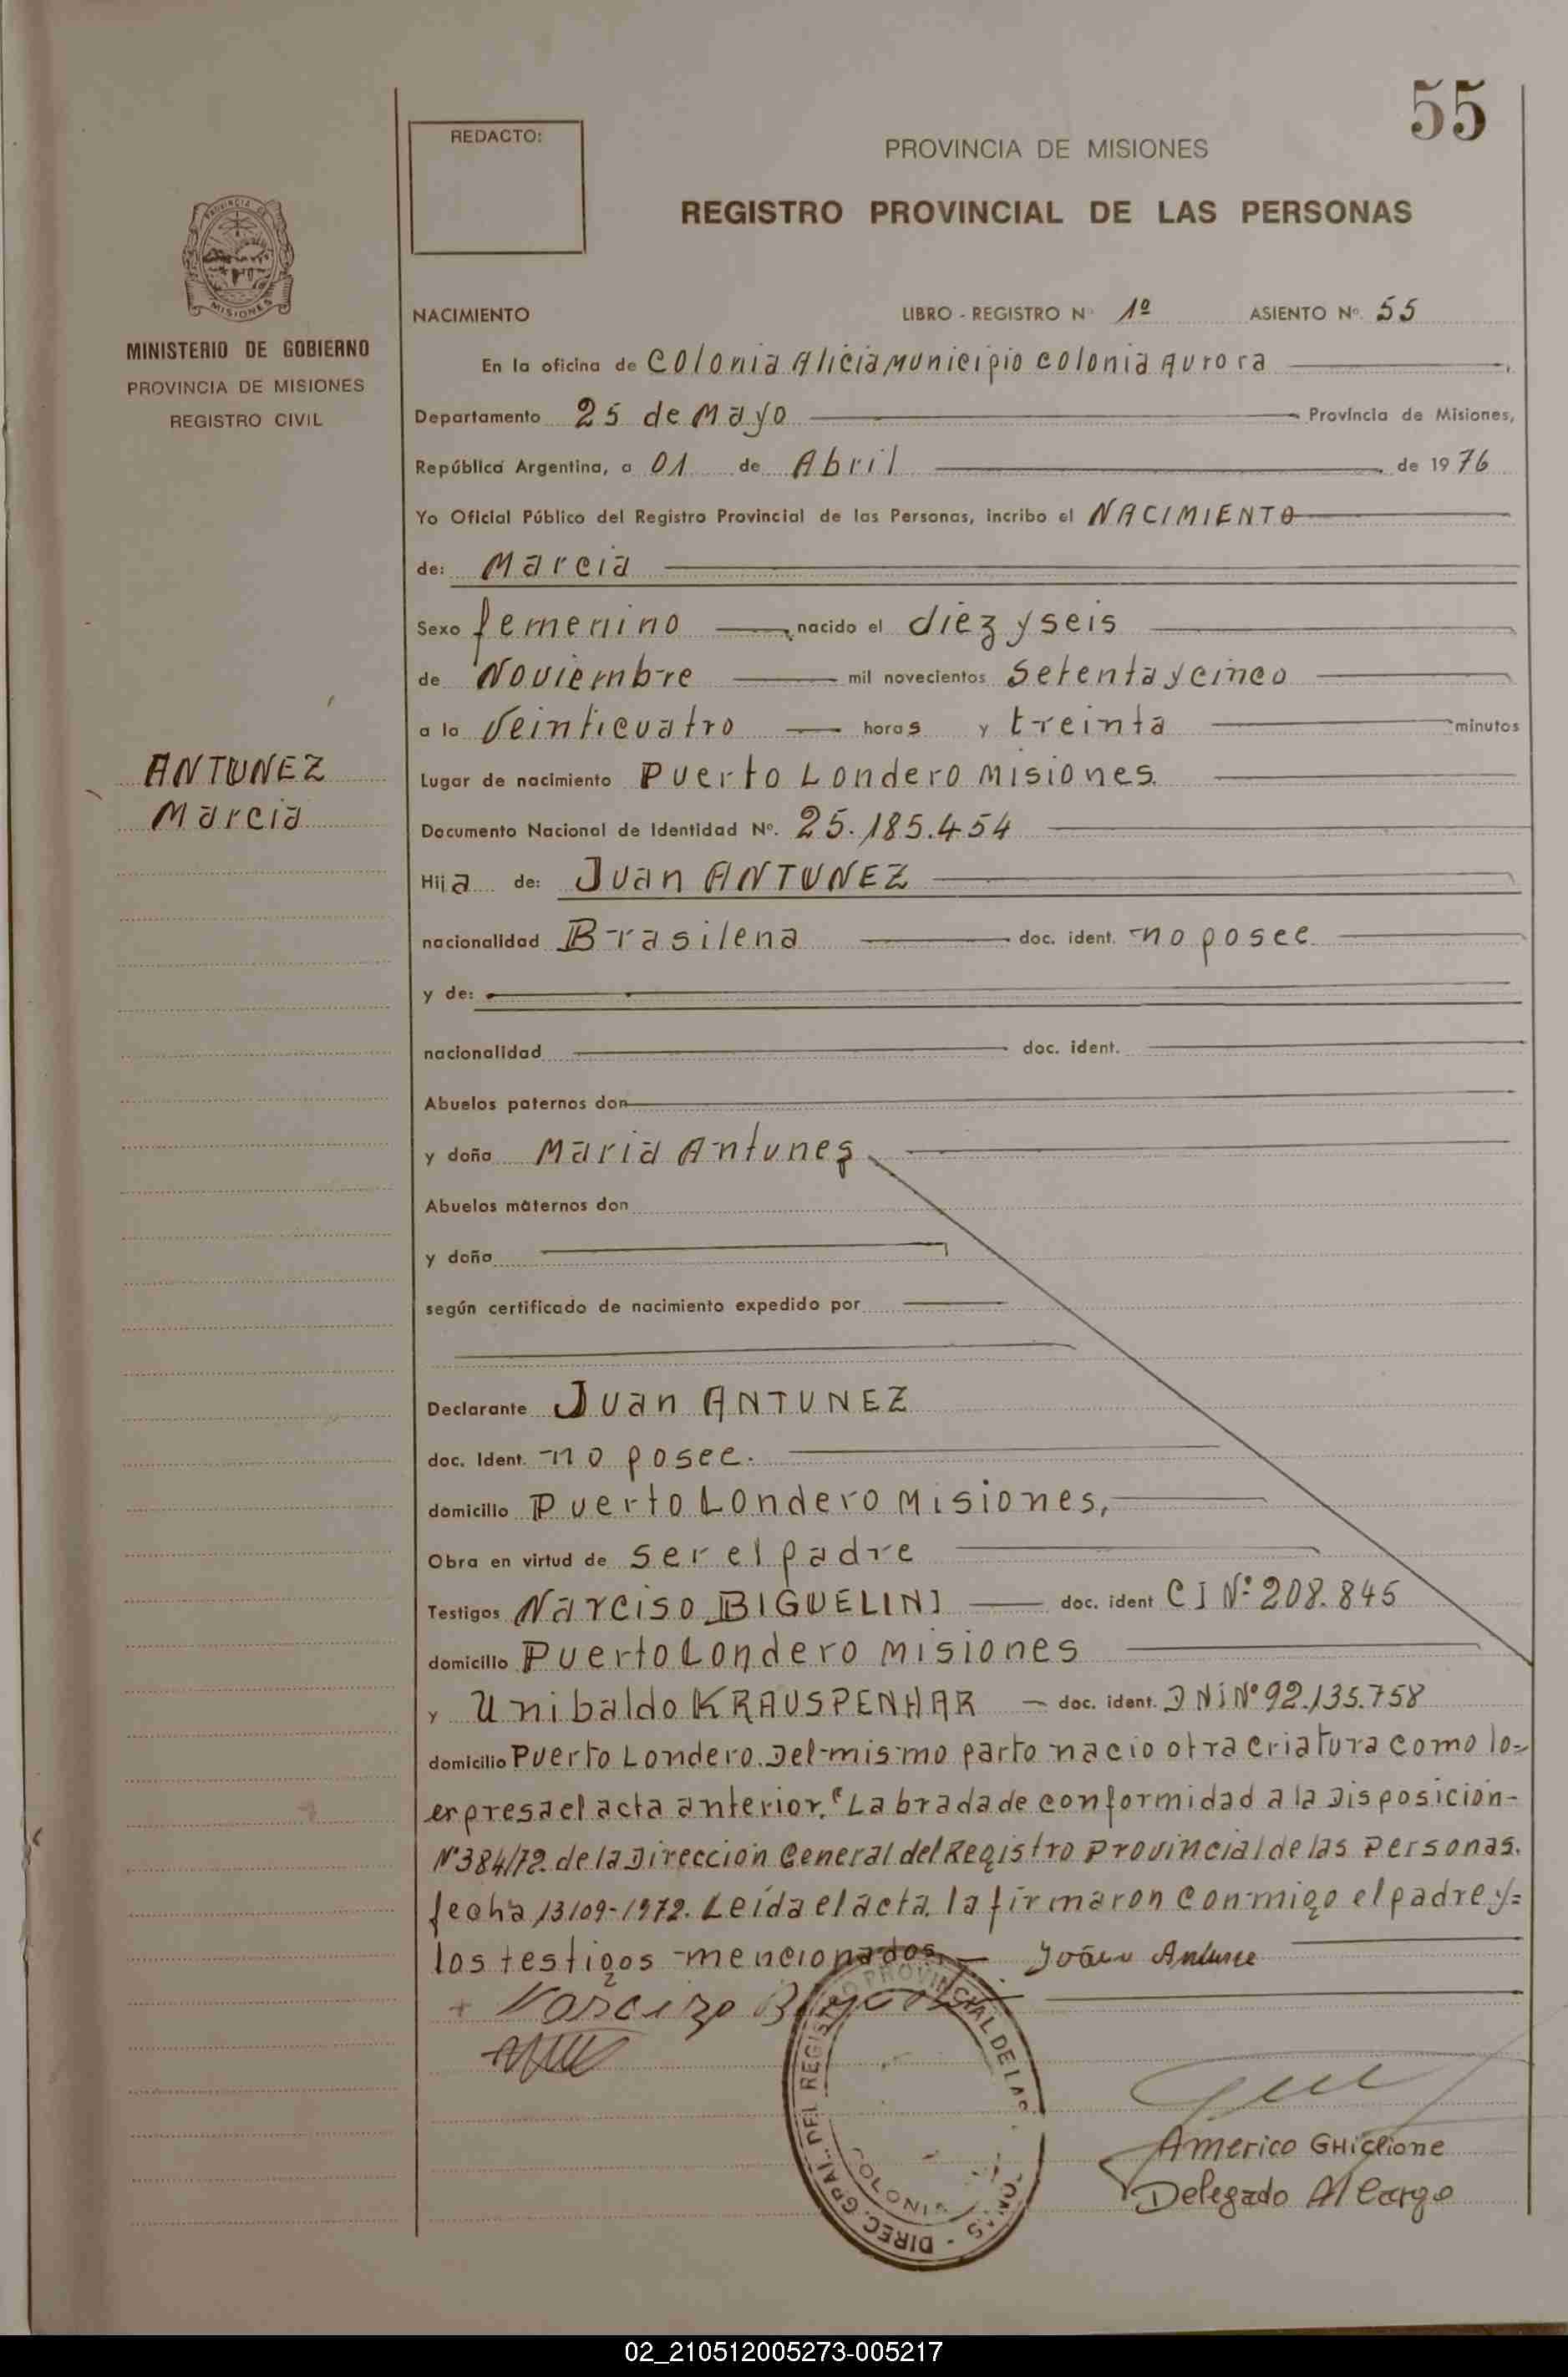 55
REDACTO:
PROVINCIA DE MISIONES
REGISTRO PROVINCIAL DE LAS PERSONAS
PROVINCIA DE
MISIONES
MINISTERIO DE GOBIERNO
PROVINCIA DE MISIONES
REGISTRO CIVIL
NACIMIENTO LIBRO - REGISTRO N° 1º ASIENTO Nº. 55
En la oficina de Colonia Alicia Municipio Colonia Aurora
Departamento 25 de Mayo Provincia de Misiones,
República Argentina, a 01 de Abril de 1976
Yo Oficial Público del Registro Provincial de las Personas, incribo el NACIMIENTO
de: Marcia
Sexo femenino nacido el diez y seis
de Noviembre mil novecientos Setenta y cinco
a la Veinticuatro horas y treinta minutos
ANTUNEZ
Marcia
Lugar de nacimiento Puerto Londero Misiones.
Documento Nacional de Identidad Nº. 25.185.454
Hija de: Juan ANTUNEZ
nacionalidad Brasilena doc. ident. no posee
y de:
nacionalidad doc. ident.
Abuelos paternos don
y doña Maria Antunez
Abuelos maternos don
y doña
según certificado de nacimiento expedido por
Declarante Juan ANTUNEZ
doc. Ident. no posee.
domicilio Puerto Londero Misiones,
Obra en virtud de ser el padre
Testigos Narciso BIGUELINI doc. ident CI Nº 208.845
domicilio Puerto Londero Misiones
y Unibaldo KRAUSPENHAR doc. ident. DNI Nº 92.135.758
domicilio Puerto Londero. Del mismo parto nacio otra criatura como lo=
expresa el acta anterior. "Labrada de conformidad a la Disposición-
Nº384/72 de la Dirección General del Registro Provincial de las Personas.
fecha 13/09-1972. Leída el acta, la firmaron conmigo el padre y=
los testigos mencionados.
João Antune
+ Narcizo
DIREC. GRAL. DEL REGISTRO PROVINCIAL DE LAS
COLONIA
Americo GHiglione
Delegado Al Cargo
02_210512005273-005217